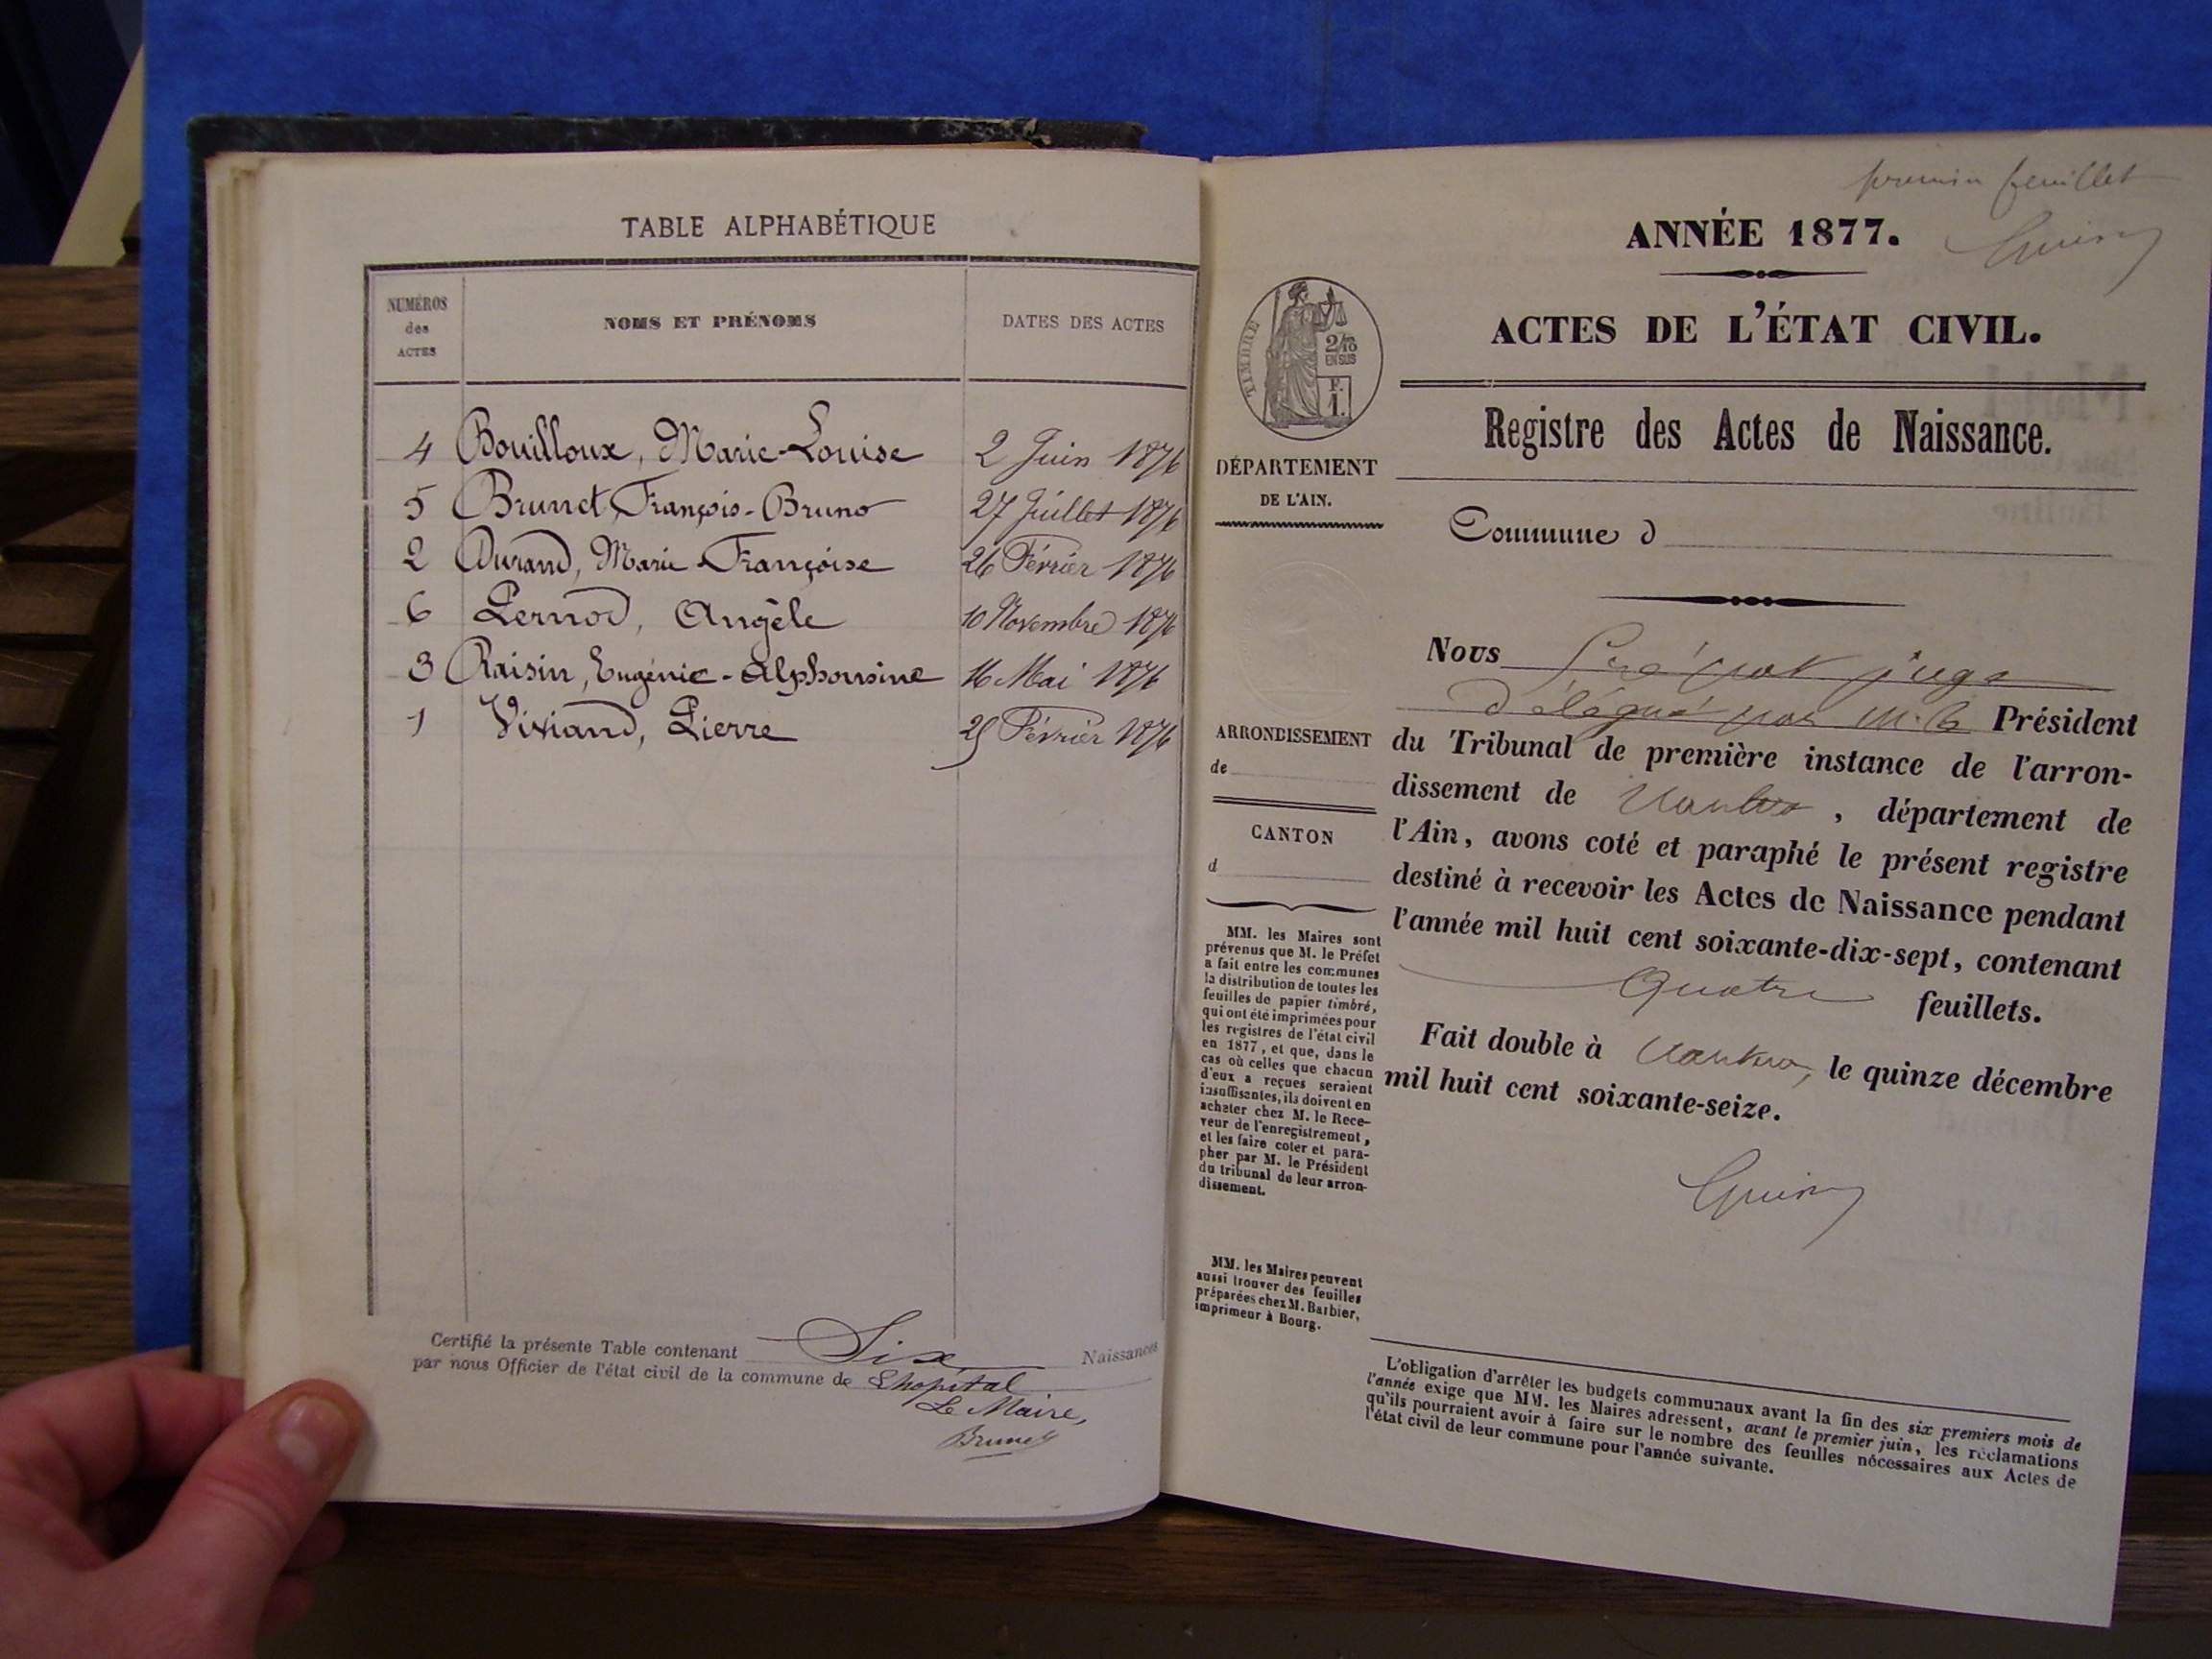 TABLE ALPHABÉTIQUE
NUMÉROS
des
ACTES
NOMS ET PRÉNOMS
DATES DES ACTES
4 Bouilloux, Marie-Louise 2 Juin 1876
5 Brunet, François-Bruno 27 Juillet 1876
2 Durand, Marie Françoise 26 Février 1876
6 Pernod, Angèle 10 Novembre 1876
3 Raisin, Eugénie-Alphonsine 16 Mai 1876
1 Viviand, Pierre 25 Février 1876
Certifié la présente Table contenant Six Naissances
par nous Officier de l'état civil de la commune de Lhopital
Le Maire,
Brunet
premier feuillet
ANNÉE 1877.
ACTES DE L'ÉTAT CIVIL.
TIMBRE
2/10
EN SUS
F.
1.
Registre des Actes de Naissance.
DÉPARTEMENT
DE L'AIN.
Commune d
ARRONDISSEMENT
de
CANTON
d
MM. les Maires sont
prévenus que M. le Préfet
a fait entre les communes
la distribution de toutes les
feuilles de papier timbré,
qui ont été imprimées pour
les registres de l'état civil
en 1877, et que, dans le
cas où celles que chacun
d'eux a reçues seraient
insuffisantes, ils doivent en
acheter chez M. le Rece-
veur de l'enregistrement,
et les faire coter et para-
pher par M. le Président
du tribunal de leur arron-
dissement.
MM. les Maires peuvent
aussi trouver des feuilles
préparées chez M. Barbier,
imprimeur à Bourg.
Nous juge
délégué par M. le Président
du Tribunal de première instance de l'arron-
dissement de Nantua, département de
l'Ain, avons coté et paraphé le présent registre
destiné à recevoir les Actes de Naissance pendant
l'année mil huit cent soixante-dix-sept, contenant
Quatre feuillets.
Fait double à Nantua, le quinze décembre
mil huit cent soixante-seize.
L'obligation d'arrêter les budgets communaux avant la fin des six premiers mois de
l'année exige que MM. les Maires adressent, avant le premier juin, les réclamations
qu'ils pourraient avoir à faire sur le nombre des feuilles nécessaires aux Actes de
l'état civil de leur commune pour l'année suivante.